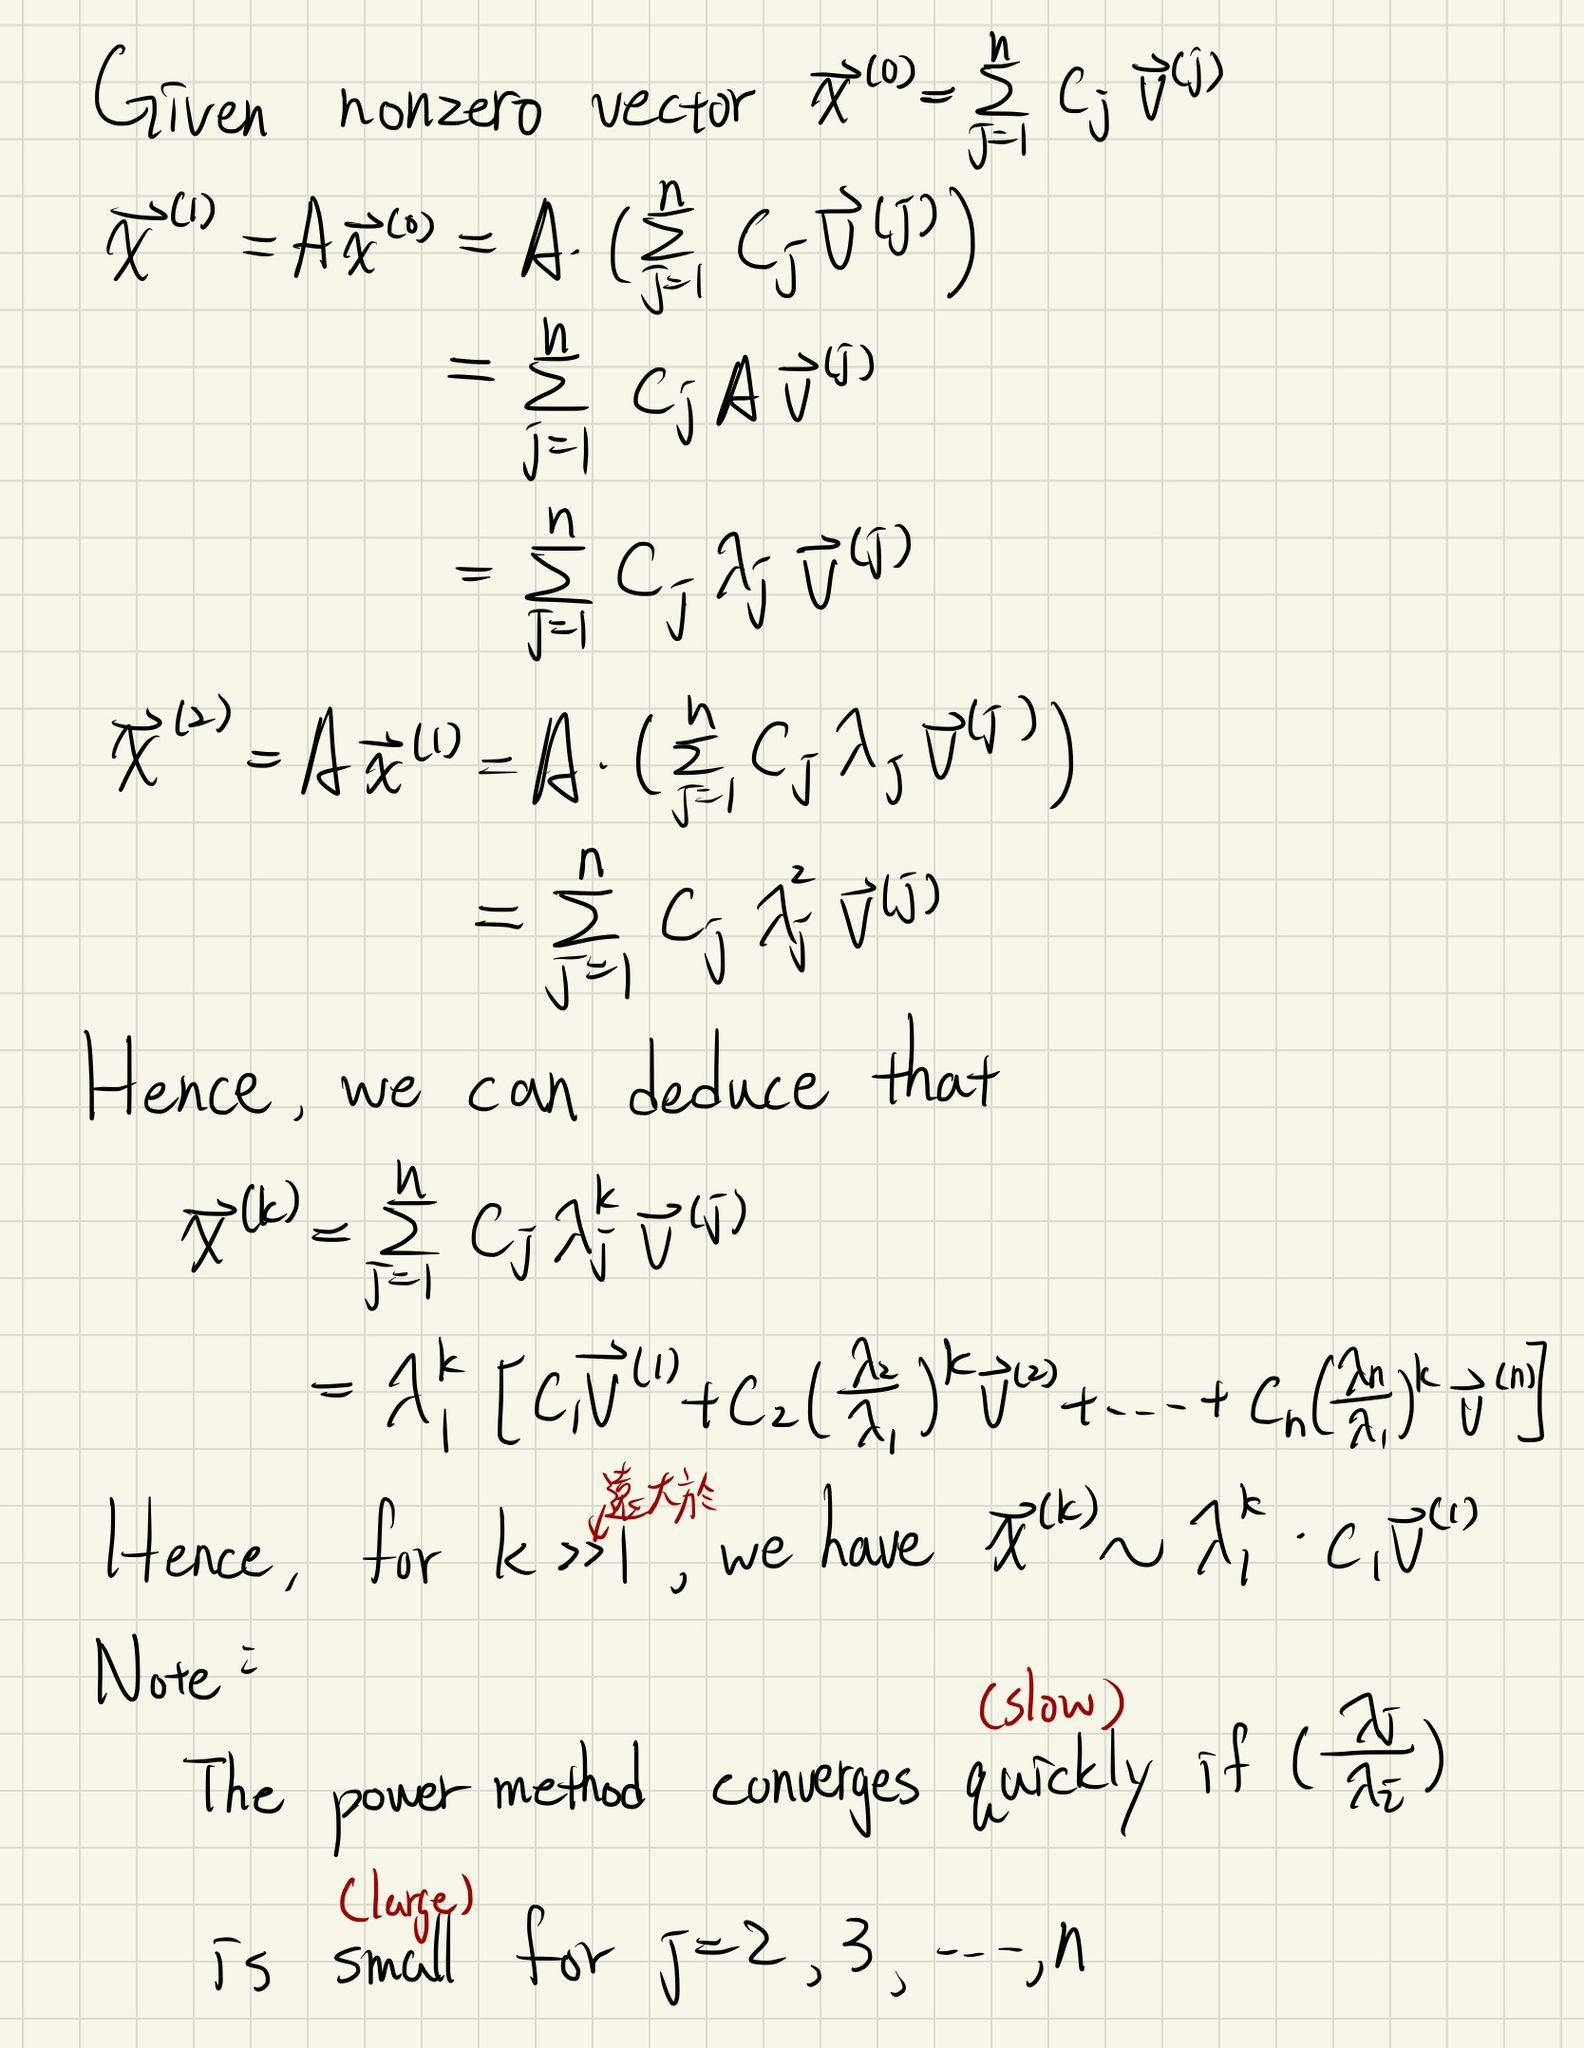 Given nonzero vector x⃗^(0) = Σ_{j=1}^{n} C_j v⃗^(j)
x⃗^(1) = A x⃗^(0) = A · (Σ_{j=1}^{n} C_j v⃗^(j))
= Σ_{j=1}^{n} C_j A v⃗^(j)
= Σ_{j=1}^{n} C_j λ_j v⃗^(j)
x⃗^(2) = A x⃗^(1) = A · (Σ_{j=1}^{n} C_j λ_j v⃗^(j))
= Σ_{j=1}^{n} C_j λ_j^2 v⃗^(j)
Hence, we can deduce that
x⃗^(k) = Σ_{j=1}^{n} C_j λ_j^k v⃗^(j)
= λ_1^k [C_1 v⃗^(1) + C_2 (λ_2/λ_1)^k v⃗^(2) + ---- + C_n (λ_n/λ_1)^k v⃗^(n)]
遠大於
Hence, for k >> 1, we have x⃗^(k) ~ λ_1^k · C_1 v⃗^(1)
Note:
(slow)
The power method converges quickly if (λ_j/λ_i)
(large)
is small for j=2, 3, ---, n